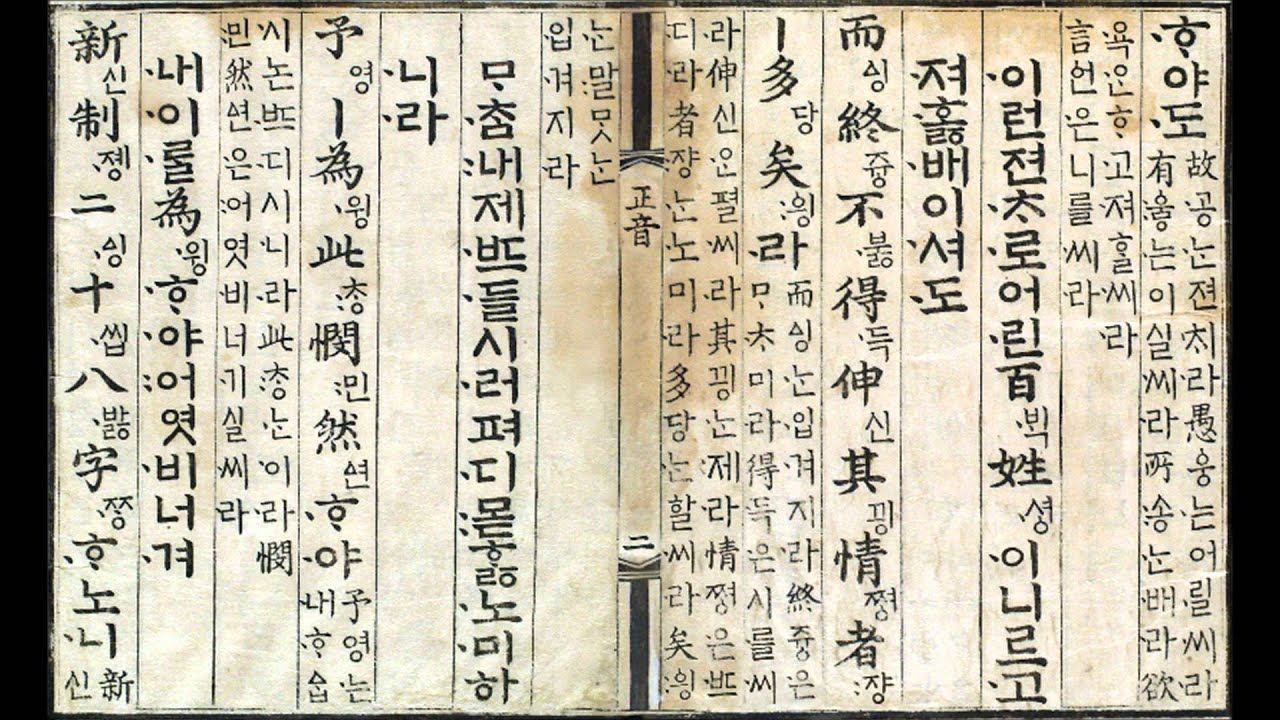 ᄒᆞ야도
故공ᄂᆞᆫ젼ᄎᆡ라愚ᅌᅮᆼ는어릴씨라
有ᅌᅮᇢ는이실씨라所송ᄂᆞᆫ배라欲
욕ᄋᆞᆫᄒᆞ고져ᄒᆞᆯ씨라
言언은니를씨라
이런젼ᄎᆞ로어린百ᄇᆡᆨ姓셔ᇰ이니르고
져호ᇙ배이셔도
而ᅀᅵᆼ終쥬ᇰ不부ᇙ得득伸신其끵情쪄ᇰ者쟝
ㅣ多당矣ᅌᅴᆼ라
而ᅀᅵᆼᄂᆞᆫ입겨지라終쥬ᇰ은
ᄆᆞᄎᆞ미라得득은시를씨
라伸신ᄋᆞᆫ펼씨라其끵ᄂᆞᆫ제라情쪄ᇰ은ᄠᅳ
디라者쟝ᄂᆞᆫ노미라多당ᄂᆞᆫ할씨라矣ᅌᅴᆼ
正音
二
ᄂᆞᆫ말ᄆᆞᆺᄂᆞᆫ
입겨지라
ᄆᆞᄎᆞᆷ내제ᄠᅳ들시러펴디몯ᄒᆞᇙ노미하
니라
予영ㅣ為윙此ᄎᆞᆼ憫민然ᅀᅧᆫᄒᆞ야
予영는
내ᄒᆞᅀᆞᆸ
시논ᄠᅳ디시니라此ᄎᆞᆼᄂᆞᆫ이라憫
민然ᅀᅧᆫ은어엿비너기실씨라
내이ᄅᆞᆯ為윙ᄒᆞ야어엿비너겨
新신制졩二ᅀᅵᆼ十씹八바ᇙ字ᄍᆞᆼᄒᆞ노니
新
신